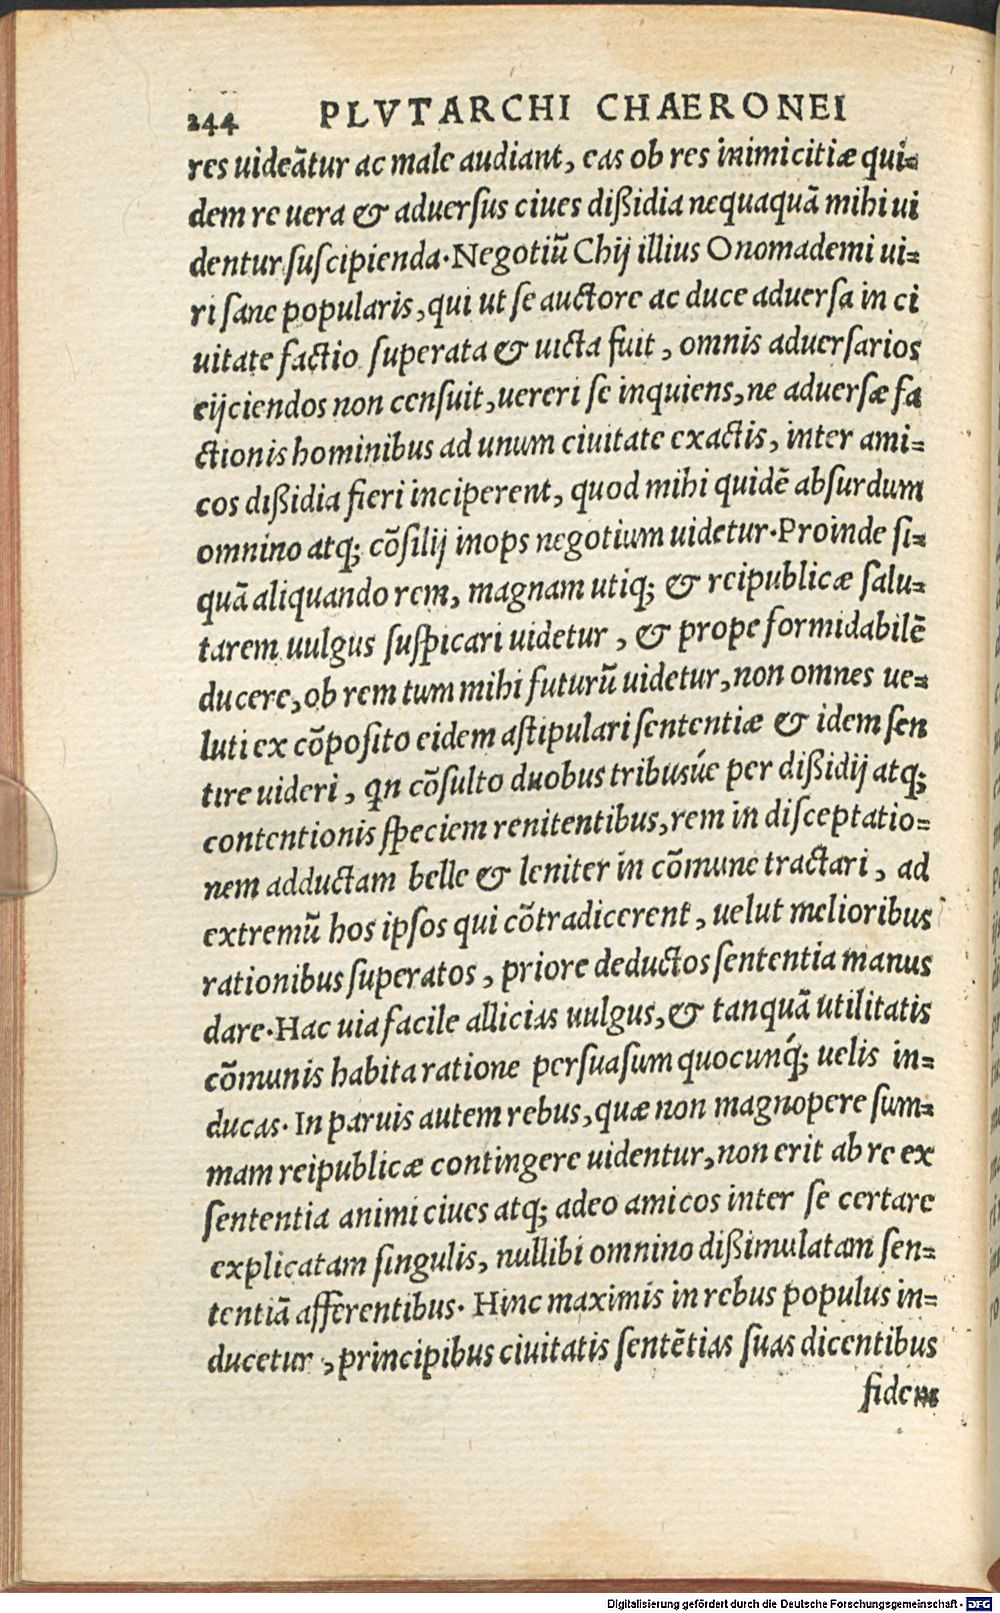 244 PLVTARCHI CHAERONEI
res uideãtur ac male audiant, eas ob res inimicitiæ qui-
dem re uera & aduersus ciues dißidia nequaquã mihi ui
dentur suscipienda. Negotiũ Chij illius Onomademi ui-
ri sane popularis, qui ut se auctore ac duce aduersa in ci
uitate factio superata & uicta fuit, omnis aduersarios
eijciendos non censuit, uereri se inquiens, ne aduersæ fa
ctionis hominibus ad unum ciuitate exactis, inter ami-
cos dißidia fieri inciperent, quod mihi quidẽ absurdum
omnino atq; cõsilij inops negotium uidetur. Proinde si-
quã aliquando rem, magnam utiq; & reipublicæ salu-
tarem uulgus suspicari uidetur, & prope formidabilẽ
ducere, ob rem tum mihi futurũ uidetur, non omnes ue-
luti ex cõposito eidem astipulari sententiæ & idem sen
tire uideri, qn cõsulto duobus tribusúe per dißidij atq;
contentionis speciem renitentibus, rem in disceptatio-
nem adductam belle & leniter in cõmune tractari, ad
extremũ hos ipsos qui cõtradicerent, uelut melioribus
rationibus superatos, priore deductos sententia manus
dare. Hac uia facile allicias uulgus, & tanquã utilitatis
cõmunis habita ratione persuasum quocunq́; uelis in-
ducas. In paruis autem rebus, quæ non magnopere sum-
mam reipublicæ contingere uidentur, non erit ab re ex
sententia animi ciues atq; adeo amicos inter se certare
explicatam singulis, nullibi omnino dißimulatam sen-
tentiã afferentibus. Hinc maximis in rebus populus in-
ducetur, principibus ciuitatis sentẽtias suas dicentibus
fidem
Digitalisierung gefördert durch die Deutsche Forschungsgemeinschaft - DFG